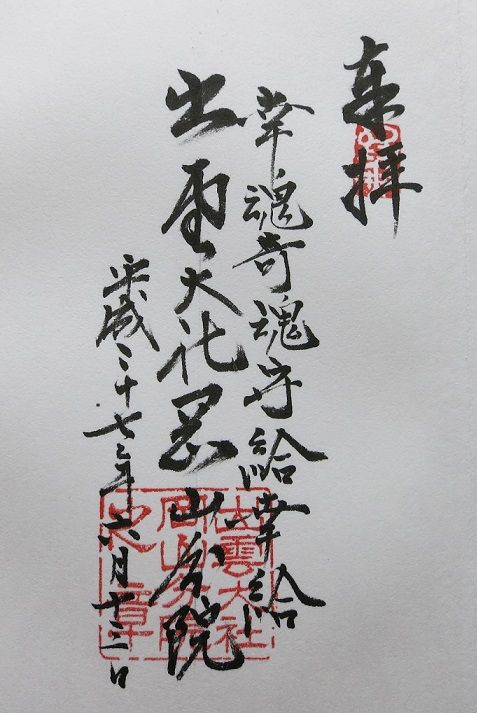 奉拝
幸魂奇魂守給幸給
出雲大社岡山分院
平成二十七年六月十三日
出雲大社
岡山分院
之章